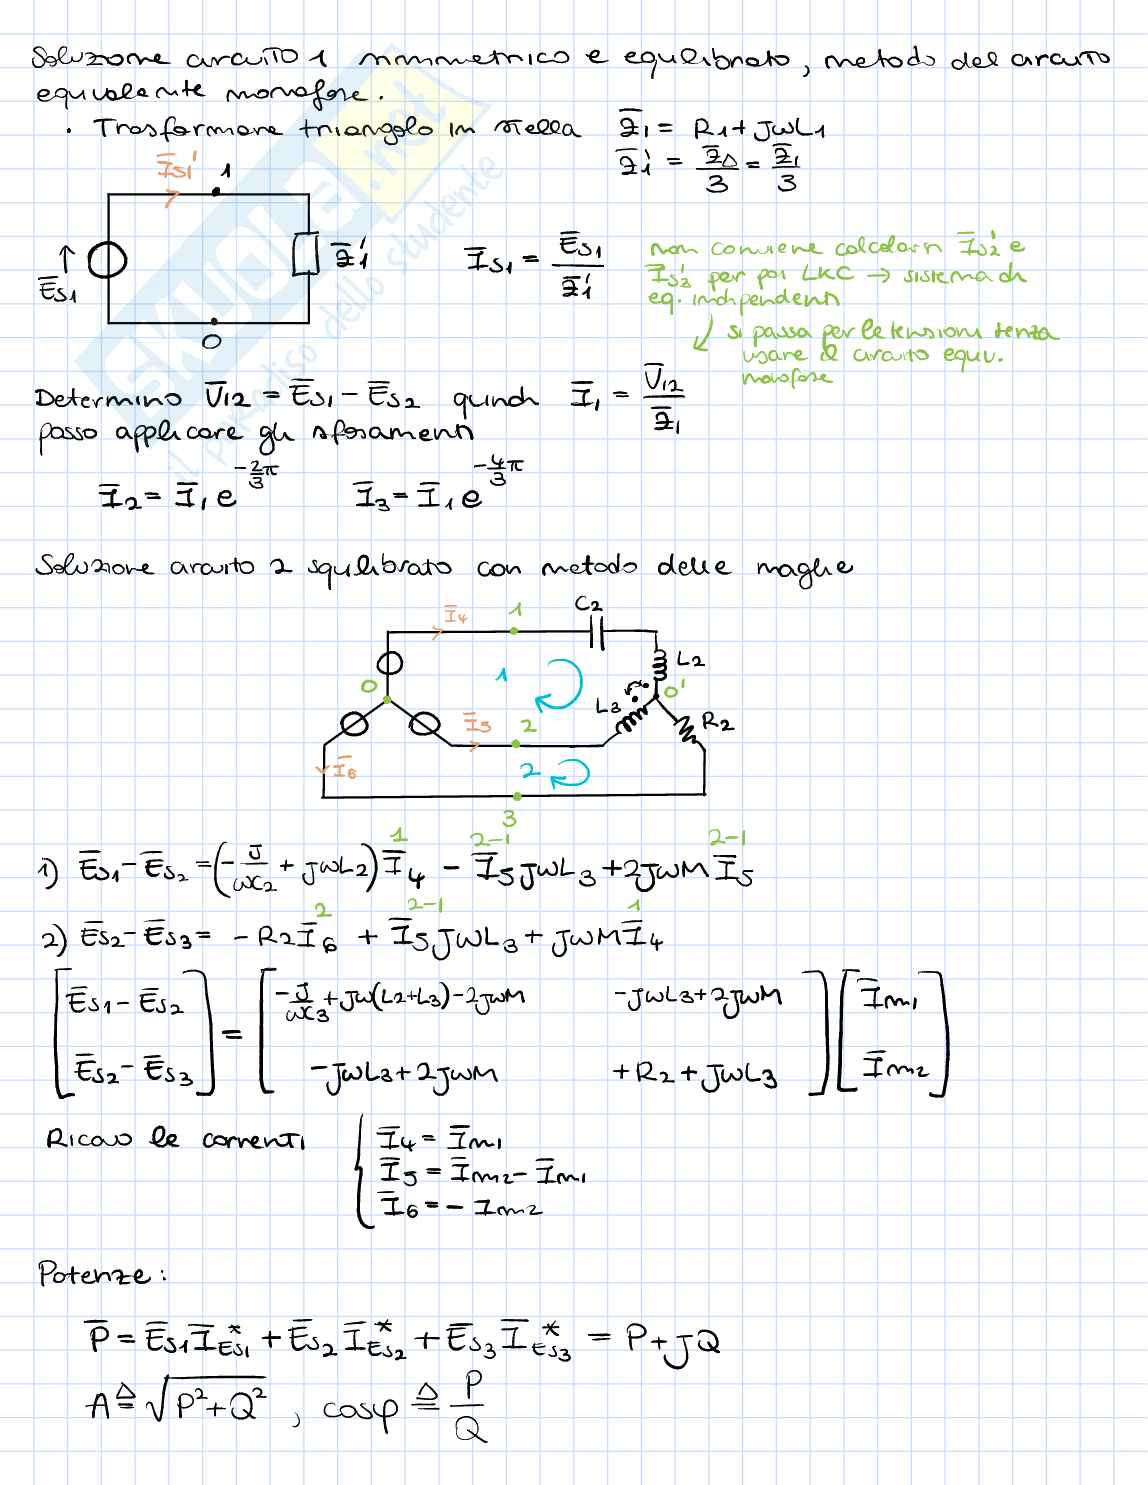 Soluzione circuito 1 simmetrico e equilibrato, metodo del circuito
equivalente monofase.
· Trasformare triangolo in stella Z̄1 = R1 + JωL1
Z̄1' = Z̄Δ/3 = Z̄1/3
ĪS1' 1
ĒS1 Z̄1' ĪS1 = ĒS1/Z̄1'
0
non conviene calcolarsi ĪS2' e
ĪS3' per poi LKC → sistema di
eq. indipendenti
si passa per le tensioni senza
usare il circuito equiv.
monofase
Determino V̄12 = ĒS1 - ĒS2 quindi Ī1 = V̄12/Z̄1
posso applicare gli sfasamenti
Ī2 = Ī1 e^(-2/3 π) Ī3 = Ī1 e^(-4/3 π)
Soluzione circuito 2 squilibrato con metodo delle maglie
Ī4 1 C2
L2
0 1 L3 0'
Ī5 2 R2
Ī6 2
3
1 2-1 2-1
1) ĒS1 - ĒS2 = (-J/ωC2 + JωL2) Ī4 - Ī5 JωL3 + 2JωM Ī5
2 2-1 1
2) ĒS2 - ĒS3 = - R2 Ī6 + Ī5 JωL3 + JωM Ī4
[ĒS1 - ĒS2] = [-J/ωC3 + Jω(L2+L3) - 2JωM -JωL3 + 2JωM] [Īm1]
[ĒS2 - ĒS3] [-JωL3 + 2JωM + R2 + JωL3] [Īm2]
Ricavo le correnti { Ī4 = Īm1
Ī5 = Īm2 - Īm1
Ī6 = - Im2
Potenze:
P̄ = ĒS1 Ī*ES1 + ĒS2 Ī*ES2 + ĒS3 Ī*ES3 = P + JQ
A ≜ √(P² + Q²) , cosφ ≜ P/Q
SKUOLA.net
il paradiso dello studente